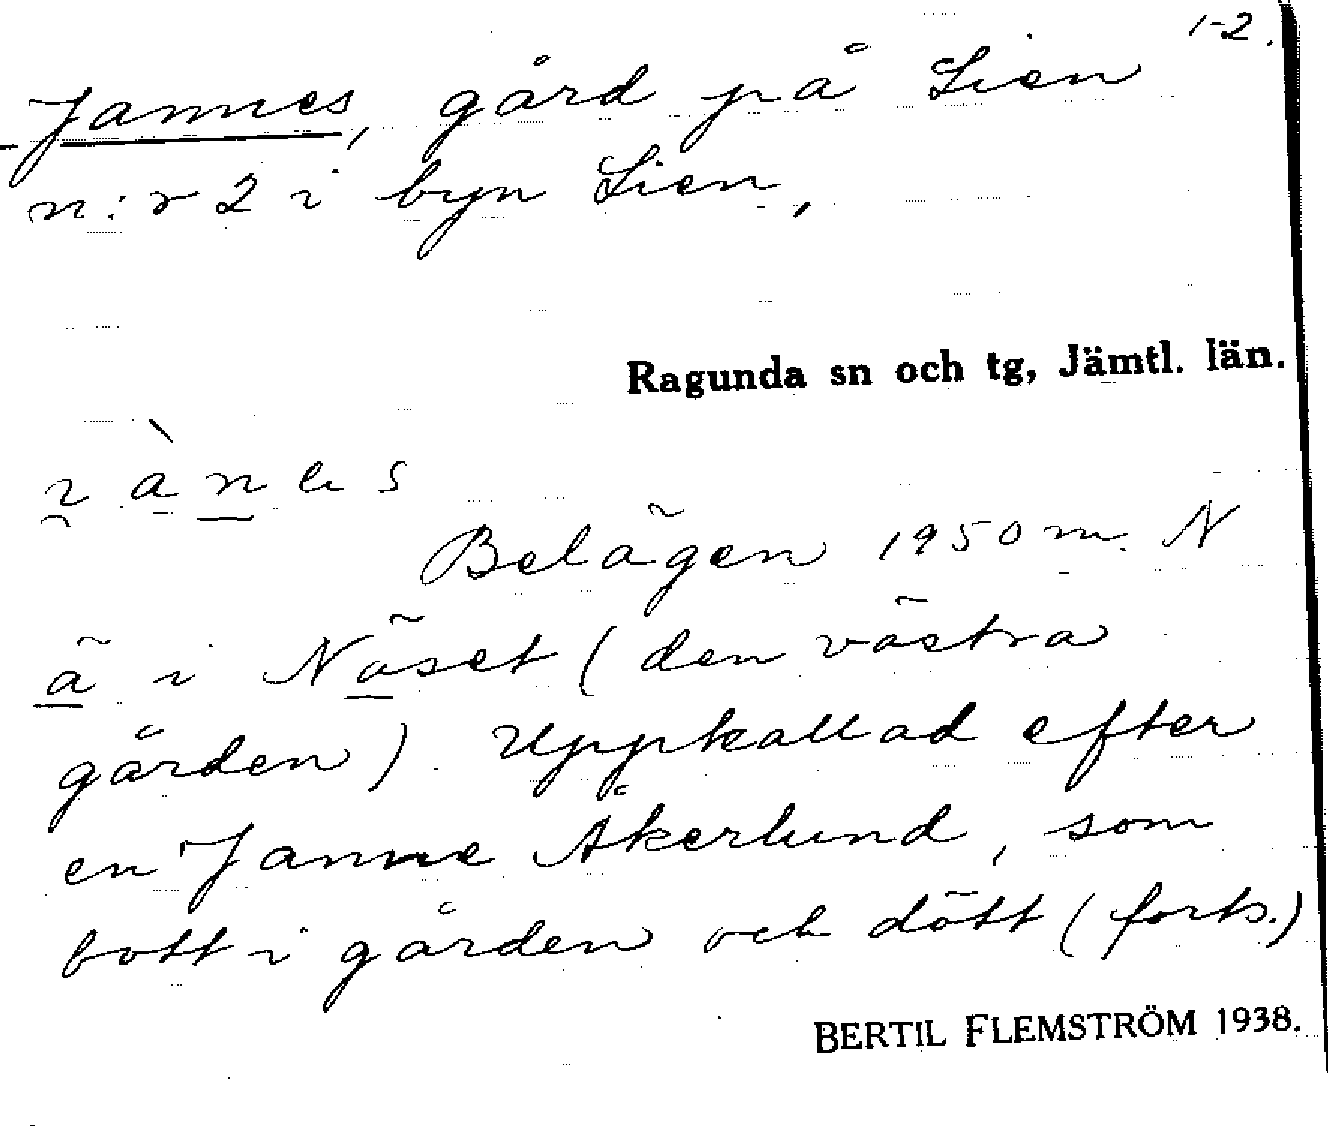 1-2.
Jannes, gård på Lien
n:r 2 i byn Lien,
Ragunda sn och tg, Jämtl. län.
Belägen 1950 m. N
ä i Näset (den västra
gården). Uppkallad efter
en Janne Åkerlund, som
bott i gården och dött (forts.)
BERTIL FLEMSTRÖM 1938.